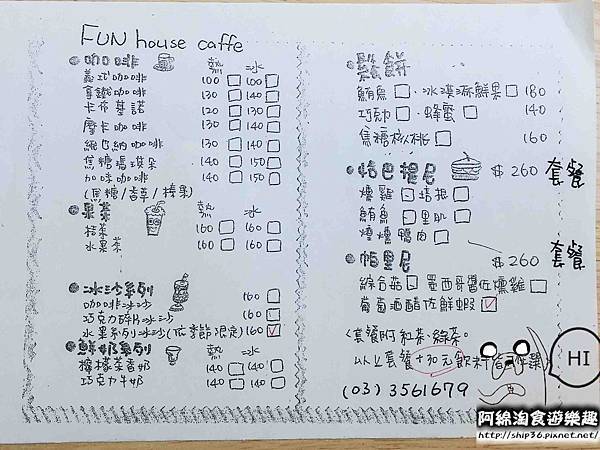 FUN house caffe
咖啡 熱 冰
義式咖啡 100 100
拿鐵咖啡 130 140
卡布基諾 120 130
摩卡咖啡 130 140
維也納咖啡 130 140
焦糖瑪琪朵 140 150
加味咖啡 140 150
(焦糖/香草/榛果)
果茶 熱 冰
桔茶 160 160
水果茶 160 160
冰沙系列
咖啡冰沙 160
巧克力碎片冰沙 160
水果系列冰沙(依季節限定) 160
鮮奶系列 熱 冰
檸檬茶香奶 140 140
巧克力牛奶 140 140
鬆餅
鮪魚 . 冰淇淋鮮果 180
巧克力 . 蜂蜜 140
焦糖核桃 160
帕里尼 $260 套餐
燻雞 培根
鮪魚 里肌
煙燻鴨肉
$260 套餐
綜合菇 墨西哥醬佐燻雞
葡萄酒醋佐鮮蝦
(套餐附紅茶.綠茶。
以上套餐+30元飲料
(03) 3561679
HI
阿綿淘食遊樂趣
http://ship36.pixnet.net/blog